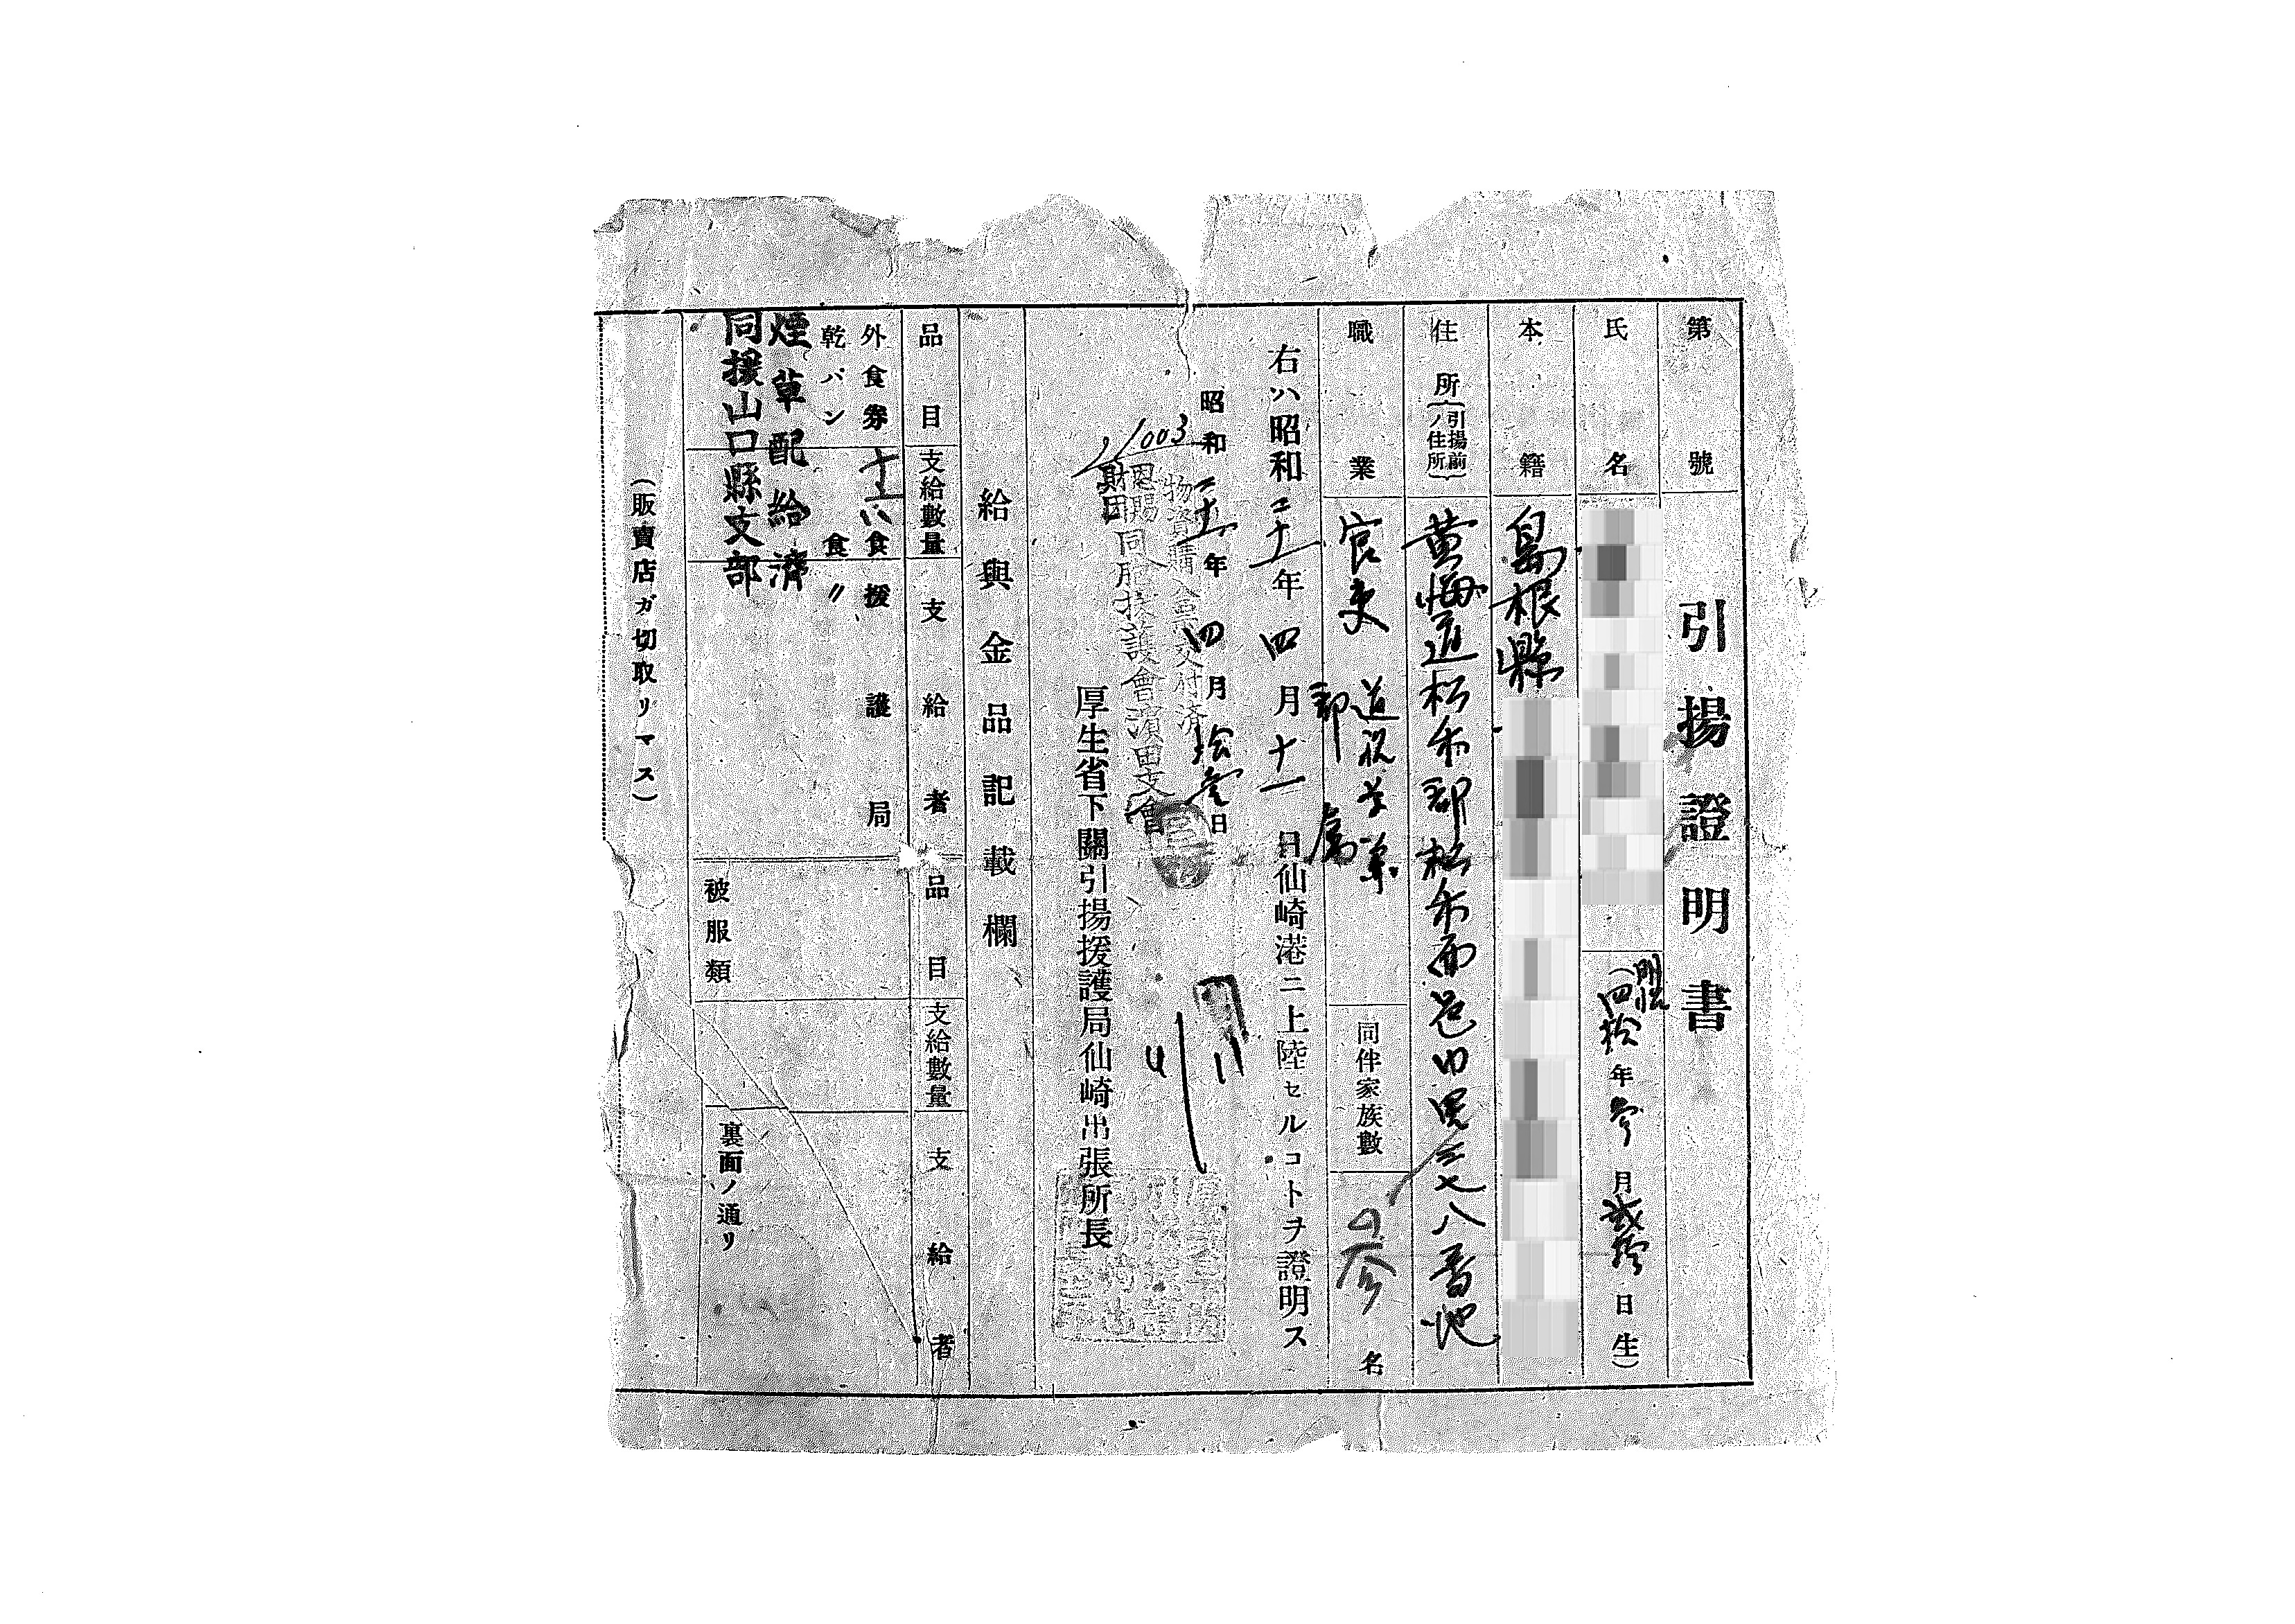 引揚證明書
第號
氏名
(明治四拾年参月貳拾日生)
本籍
島根縣
住所(引揚前ノ住所)
黄海道松禾郡松禾面邑内里三七八番地
職業
官吏
同伴家族數
参名
右ハ昭和二十一年四月十一日仙崎港ニ上陸セルコトヲ證明ス
昭和二十一年四月拾壹日
物資購入票交付済
恩賜
財団
同胞援護會濱田支會
厚生省下關引揚援護局仙崎出張所長
給與金品記載欄
品目
支給數量
支給者
品目
支給數量
支給者
外食券
食
援護局
乾パン
食
〃
煙草配給濟
同援山口縣支部
被服類
裏面ノ通リ
(販賣店ガ切取リマス)